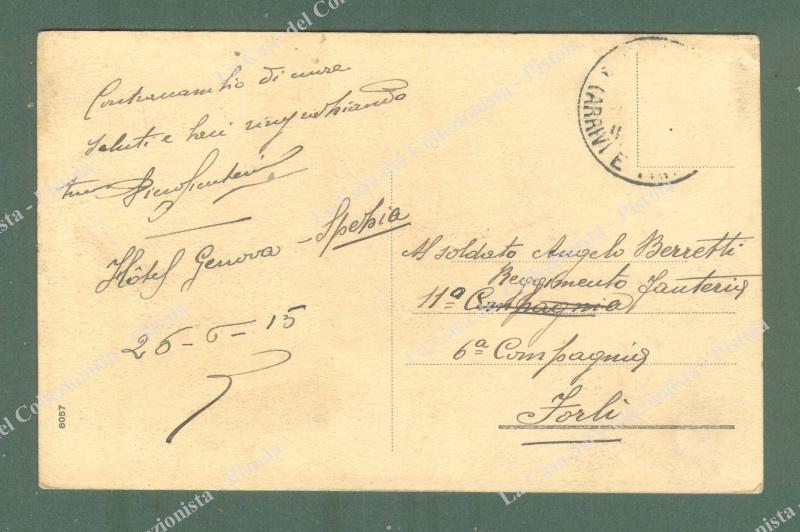 Contracambio di cuore
saluti e baci ringraziando
tuo
Hôtel Genova - Spezia
26-6-15
8057
ARRIVI E
Al soldato Angelo Berretti
Reggimento Fanteria
11ª Compagnia
6ª Compagnia
Forlì
La Casa del Collezionista - Pistoia